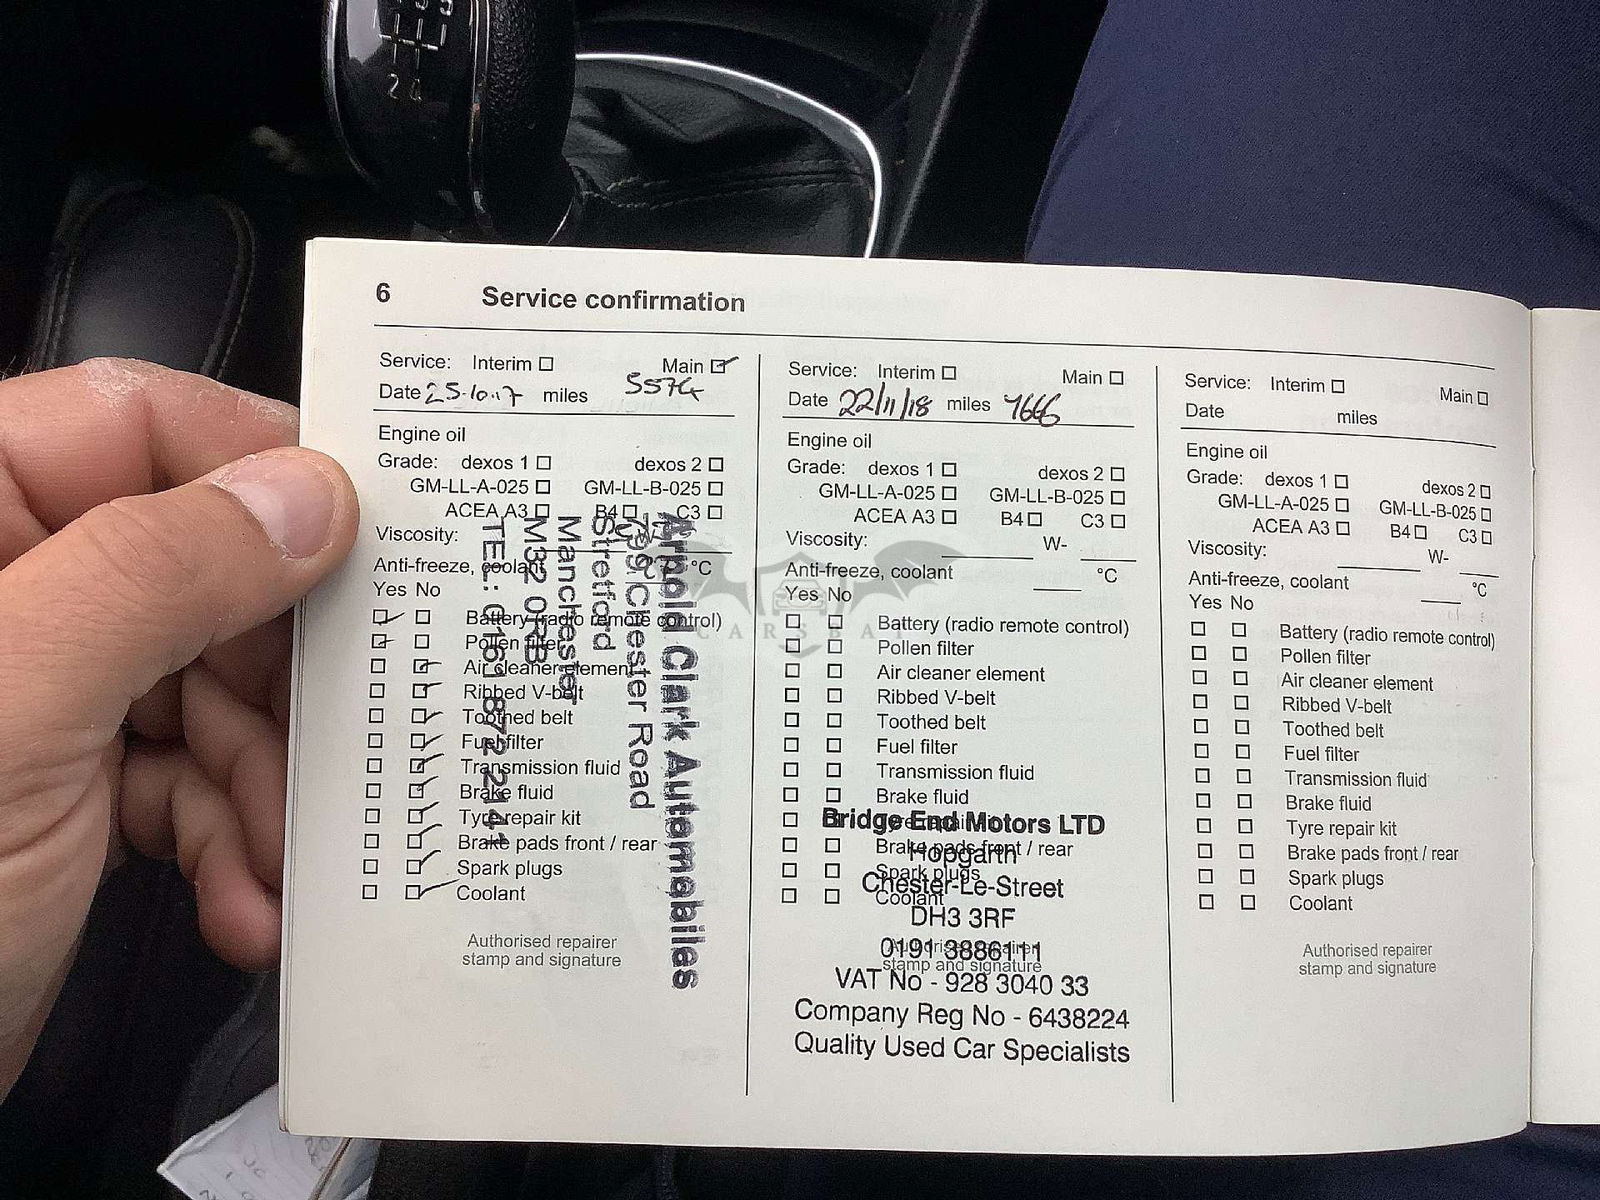 2 4
6 Service confirmation
Service: Interim Main
Date 25.10.17 miles 5574
Engine oil
Grade: dexos 1 dexos 2
GM-LL-A-025 GM-LL-B-025
ACEA A3 B4 C3
Viscosity:
Anti-freeze, coolant °C
Yes No
Battery (radio remote control)
Pollen filter
Air cleaner element
Ribbed V-belt
Toothed belt
Fuel filter
Transmission fluid
Brake fluid
Tyre repair kit
Brake pads front / rear
Spark plugs
Coolant
Authorised repairer
stamp and signature
Arnold Clark Automobiles
799 Chester Road
Stretford
Manchester
M32 0RB
TEL: 0161 872 2141
Service: Interim Main
Date 22/11/18 miles 7666
Engine oil
Grade: dexos 1 dexos 2
GM-LL-A-025 GM-LL-B-025
ACEA A3 B4 C3
Viscosity: W-
Anti-freeze, coolant °C
Yes No
Battery (radio remote control)
Pollen filter
Air cleaner element
Ribbed V-belt
Toothed belt
Fuel filter
Transmission fluid
Brake fluid
Tyre repair kit
Brake pads front / rear
Spark plugs
Coolant
Authorised repairer
stamp and signature
Bridge End Motors LTD
Hopgarth
Chester-Le-Street
DH3 3RF
0191 3886111
VAT No - 928 3040 33
Company Reg No - 6438224
Quality Used Car Specialists
Service: Interim Main
Date miles
Engine oil
Grade: dexos 1 dexos 2
GM-LL-A-025 GM-LL-B-025
ACEA A3 B4 C3
Viscosity: W-
Anti-freeze, coolant °C
Yes No
Battery (radio remote control)
Pollen filter
Air cleaner element
Ribbed V-belt
Toothed belt
Fuel filter
Transmission fluid
Brake fluid
Tyre repair kit
Brake pads front / rear
Spark plugs
Coolant
Authorised repairer
stamp and signature
CARSBAT